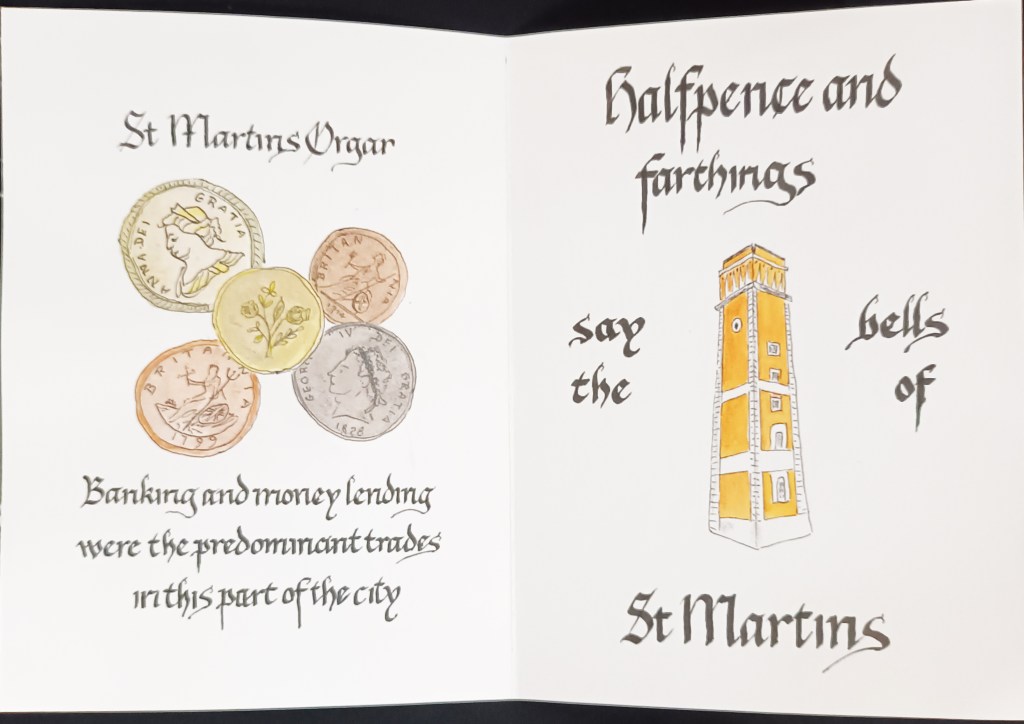 St Martins Orgar
ANNA DEI GRATIA
BRITANNIA
BRITANNIA
1799
GEORG IV DEI GRATIA
1828
Banking and money lending
were the predominant trades
in this part of the city
Halfpence and
farthings
say bells
the of
St Martins